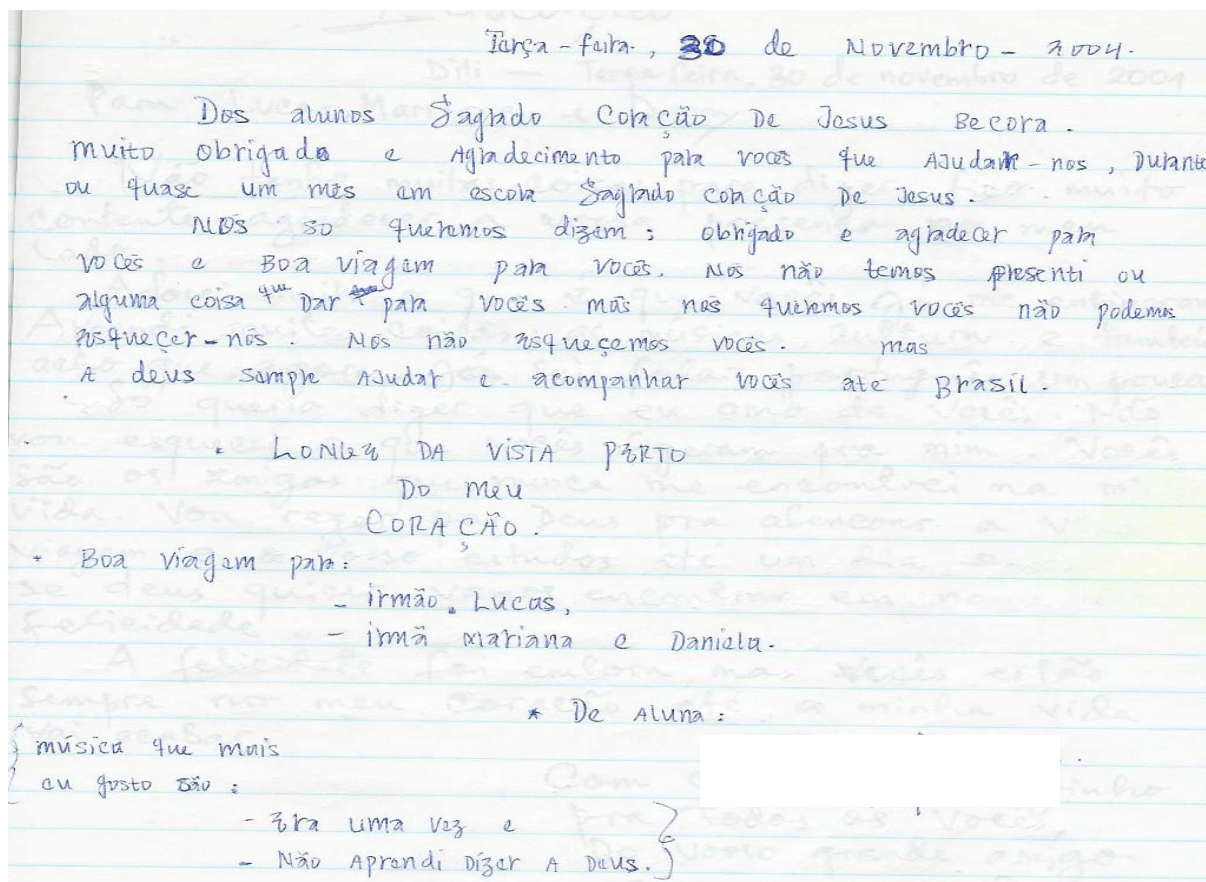 Terça-feira., 30 de Novembro - 2004.
Dos alunos Sagrado Coração De Jesus Becora.
muito obrigado e Agradecimento para voces que AJudam-nos, Durante
ou quase um mês em escola Sagrado coração De Jesus.
NÓS so queremos dizem; obrigado e agradecer para
vocês e Boa viagem para vocês. Nós não temos presenti ou
alguma coisa que Dar para vocês mas nós queremos vocês não podemos
esquecer-nós. Nós não esqueçemos vocês. mas
A deus sempre AJudar e acompanhar vocês ate Brasil.
• LONGE DA VISTA PERTO
Do meu
CORAÇÃO.
* Boa viagem para:
- irmão. Lucas,
- irmã Mariana e Daniela.
* De Aluna:
música que mais
eu gosto são:
- Era uma vez e
- Não Aprendi Dizer A Deus.